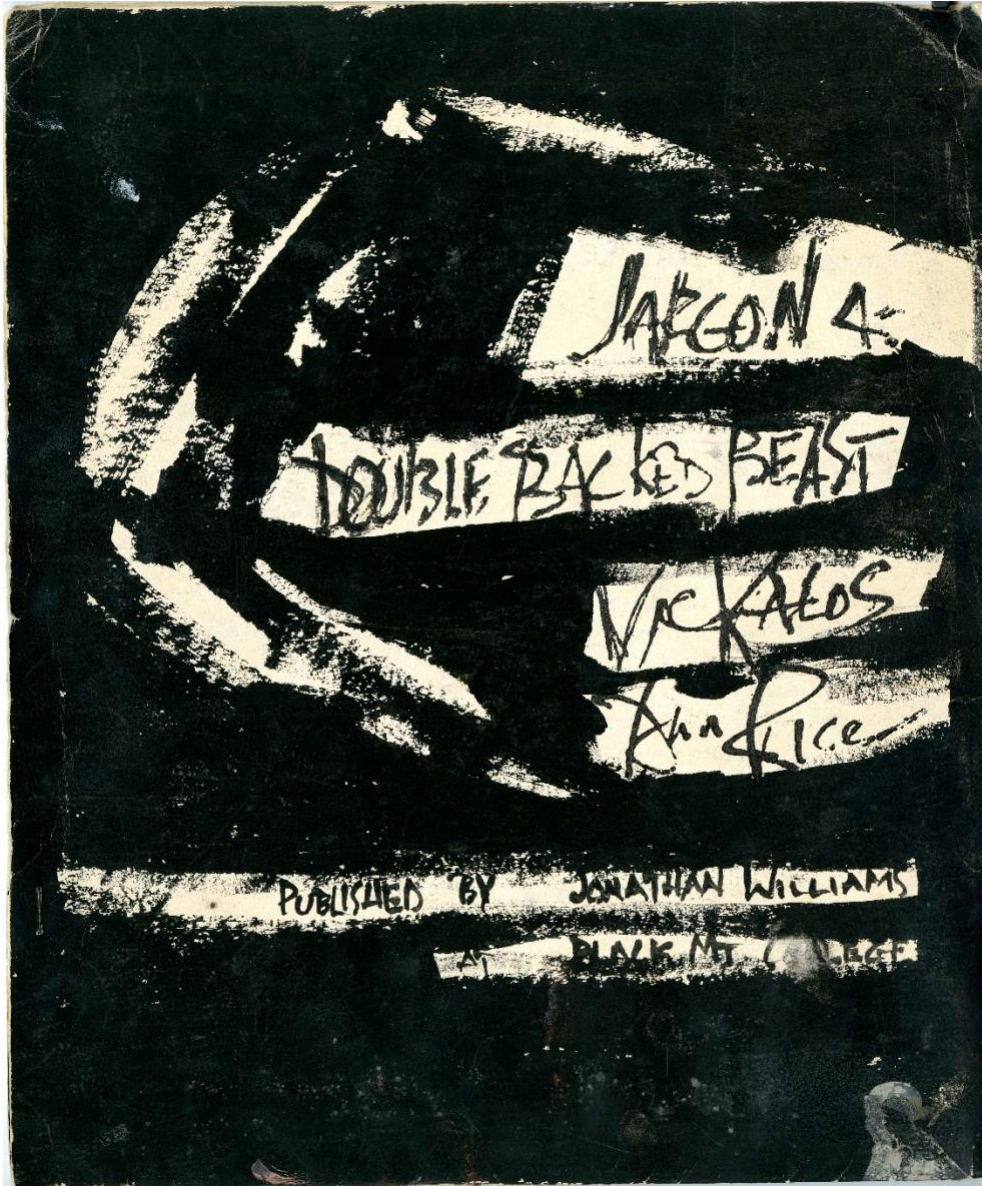 JARGON 4:
DOUBLE BACKED BEAST
VIC KALOS
Dan Rice
PUBLISHED BY JONATHAN WILLIAMS
AT BLACK MT COLLEGE